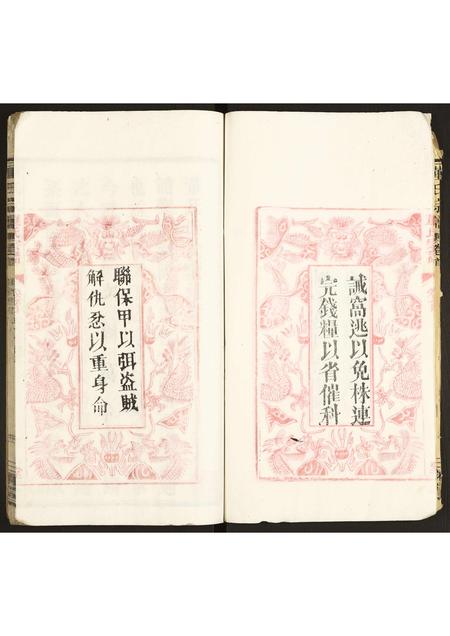 誡窩逃以免株連
完錢糧以省催科
聯保甲以弭盗賊
解仇忿以重身命